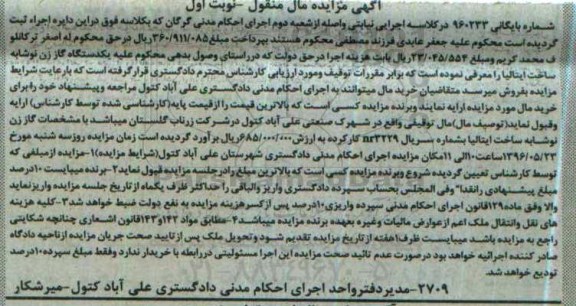 آگهی مزایده مال منقول -نوبت اول
شماره بایگانی ۹۶۰۲۳۳ درکلاسه اجرایی نیابتی واصله ازشعبه دوم اجرای احکام مدنی گرگان که بکلاسه فوق دراین دایره اجراء ثبت
گردیده است محکوم علیه جعفر عابدی فرزند مصطفی محکوم هستند بپرداخت مبلغ ۳۶۰/۹۱۱/۰۸۵ریال درحق محکوم له اصغر ترکانلو
ف محمد کریم ومبلغ ۲۳/۰۴۵/۵۵۴ ریال بابت هزینه اجرا درحق دولت که درراستای وصول بدهی محکوم علیه یکدستگاه گاز زن نوشابه
ساخت ایتالیا را معرفی نموده است که برابر مقررات توقیف ومورد ارزیابی کارشناس محترم دادگستری قرارگرفته است که بارعایت شرایط
مزایده بفروش میرسد متقاضیان خرید مال میتوانند به اجرای احکام مدنی دادگستری علی آباد کتول مراجعه وپیشنهاد خود رابرای
خرید مال مورد مزایده ارایه نمایند وبرنده مزایده کسی است که بالاترین قیمت را ازقیمت پایه(کارشناسی شده توسط کارشناس) ارایه
وقبول نماید(توصیف مال)مال توقیفی واقع در شهرک صنعتی علی آباد کتول درشرکت زرناب گلستان میباشد با مشخصات گاز زن
نوشابه ساخت ایتالیا بشماره سریال nr۳۲۲۹ کارکرده به ارزش ۶۸۵/۰۰۰/۰۰۰ریال برآورد گردیده است زمان مزایده روزسه شنبه مورخ
۱۳۹۶/۰۵/۲۳ساعت۱۰الی ۱۱مکان مزایده اجرای احکام مدنی دادگستری شهرستان علی آباد کتول(شرایط مزایده)۱-مزایده ازمبلغی که
توسط کارشناس تعیین گردیده شروع وبرنده مزایده کسی است که بالاترین مبلغ رادرجلسه مزایده قبول نماید۲-برنده میبایست ۱۰درصد
مبلغ پیشنهادی رانقدا" وفی المجلس بحساب سپرده دادگستری واریز والباقی را حداکثر ظرف یکماه از تاریخ جلسه مزایده واریزنماید
والا وفق ماده ۱۲۹قانون اجرای احکام مدنی سپرده واریزی۱۰درصد پس ازکسرهزینه مزایده به نفع دولت ضبط خواهد شد۳-کلیه هزینه
های نقل وانتقال ملک اعم ازعوارض مالیات وغیره بعهده برنده مزایده میباشد۴-مطابق مواد ۱۴۲و۱۴۳قانون اشعاری چنانچه شکایتی
راجع به مزایده باشد میبایست ظرف۱هفته از تاریخ مزایده تقدیم شود وتحویل ملک پس از تایید صحت جریان مزایده ازناحیه دادگاه
صادر کننده اجرائیه خواهد بود درصورت عدم تائید صحت مزایده این اجرا مسئولیتی دررابطه با خریدار ندارد وفقط مبلغ سپرده۱۰درصد
تودیع خواهد شد.
۲۷۰۹-مدیردفترواحد اجرای احکام مدنی دادگستری علی آباد کتول-میرشکار